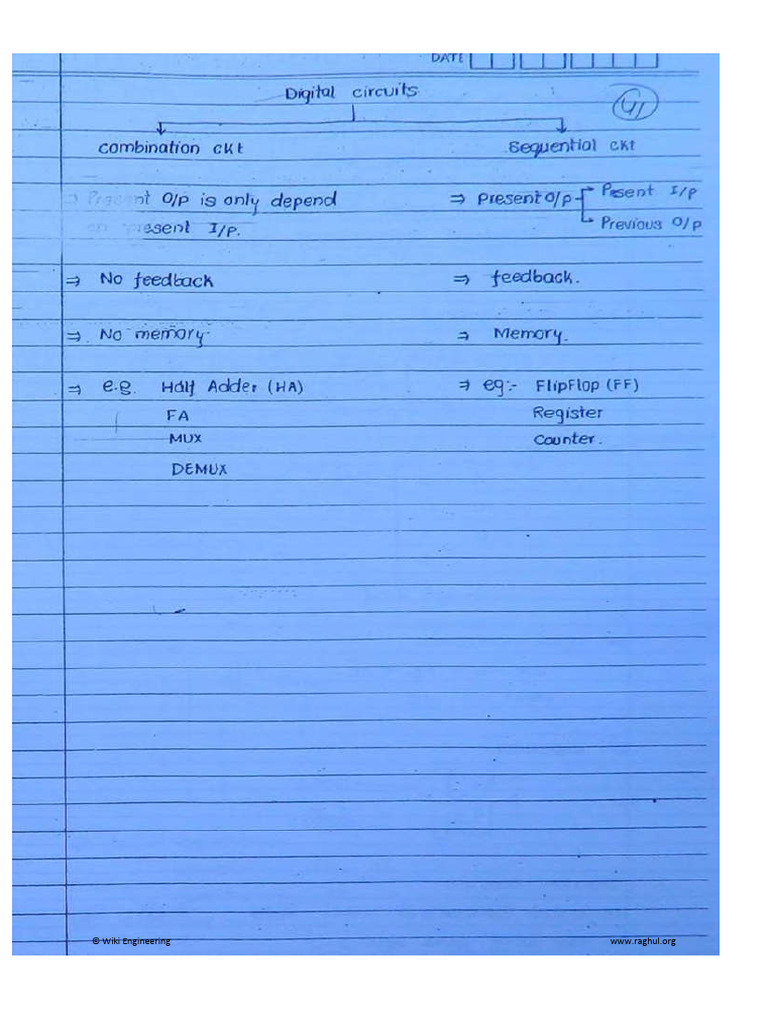 DATE
Digital circuits
41
combination ckt
Sequential ckt
⇒ Present O/p is only depend
on present I/p.
⇒ Present O/p
Present I/p
Previous O/p
⇒ No feedback
⇒ feedback.
⇒ No memory
⇒ Memory.
⇒ e.g. Half Adder (HA)
FA
MUX
DEMUX
⇒ eg:- FlipFlop (FF)
Register
Counter.
© Wiki Engineering
www.raghul.org